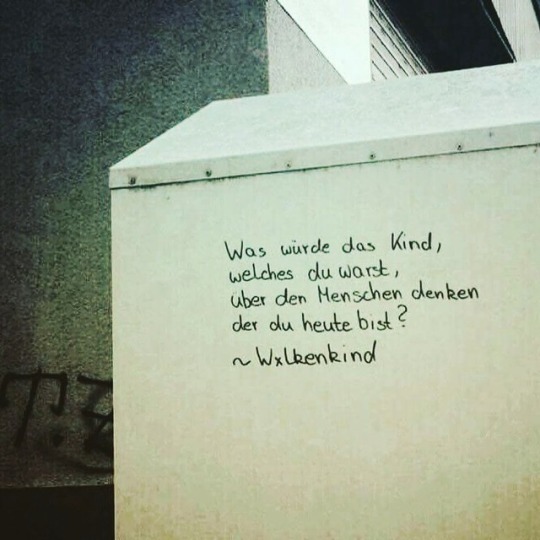 Was würde das Kind,
welches du warst,
über den Menschen denken
der du heute bist?
~ Wxlkenkind